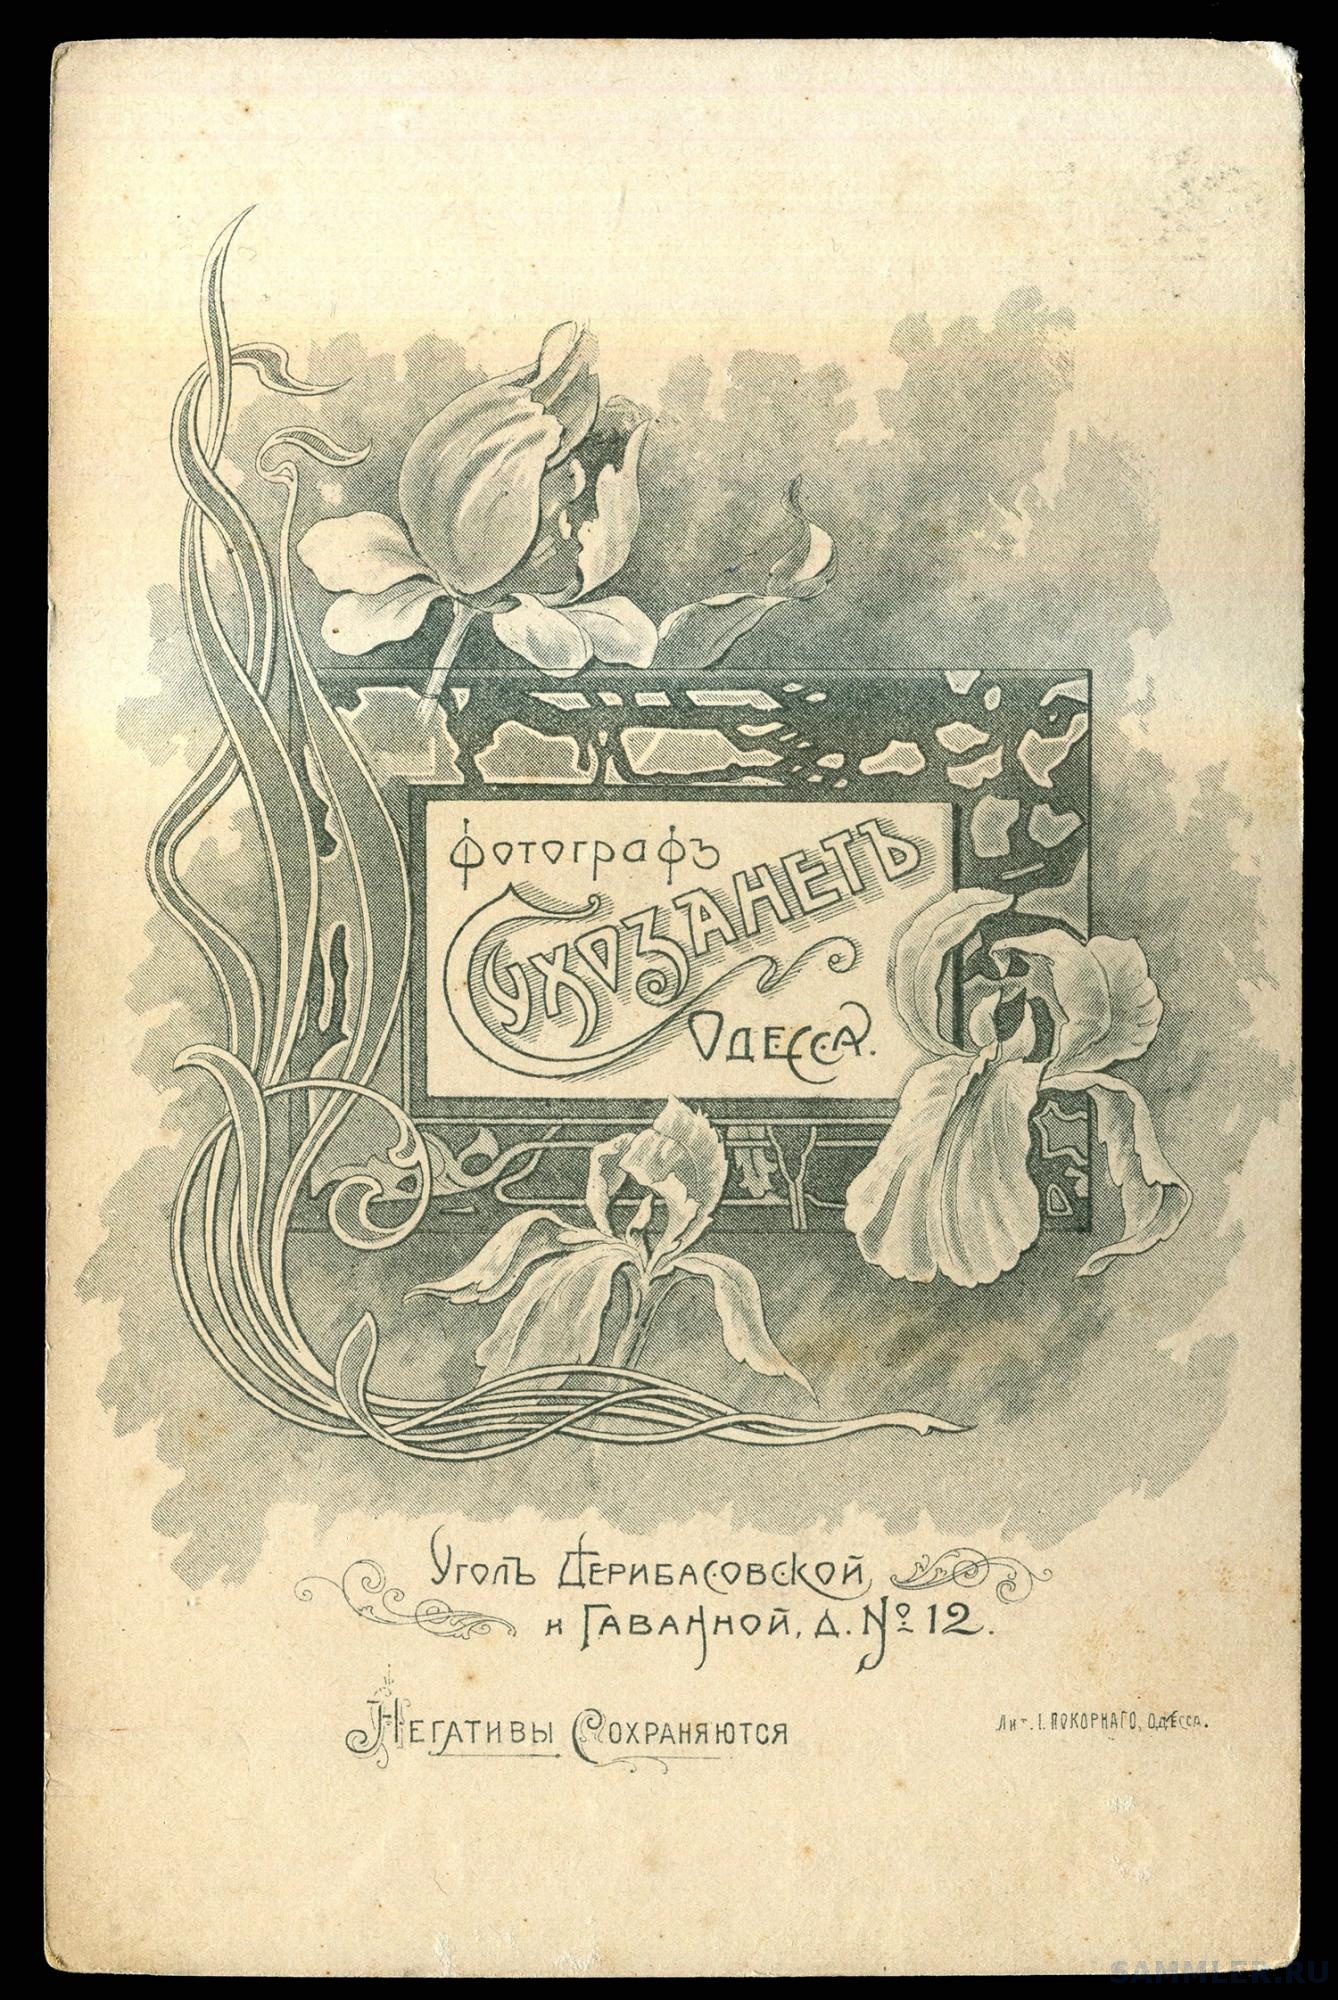 Фотографъ
Сухозанетъ
Одесса.
Уголъ Дерибасовской
и Гаванной, д. № 12.
Негативы Сохраняются
Лит. І. Покорнаго, Одесса.
SAMMLER.RU